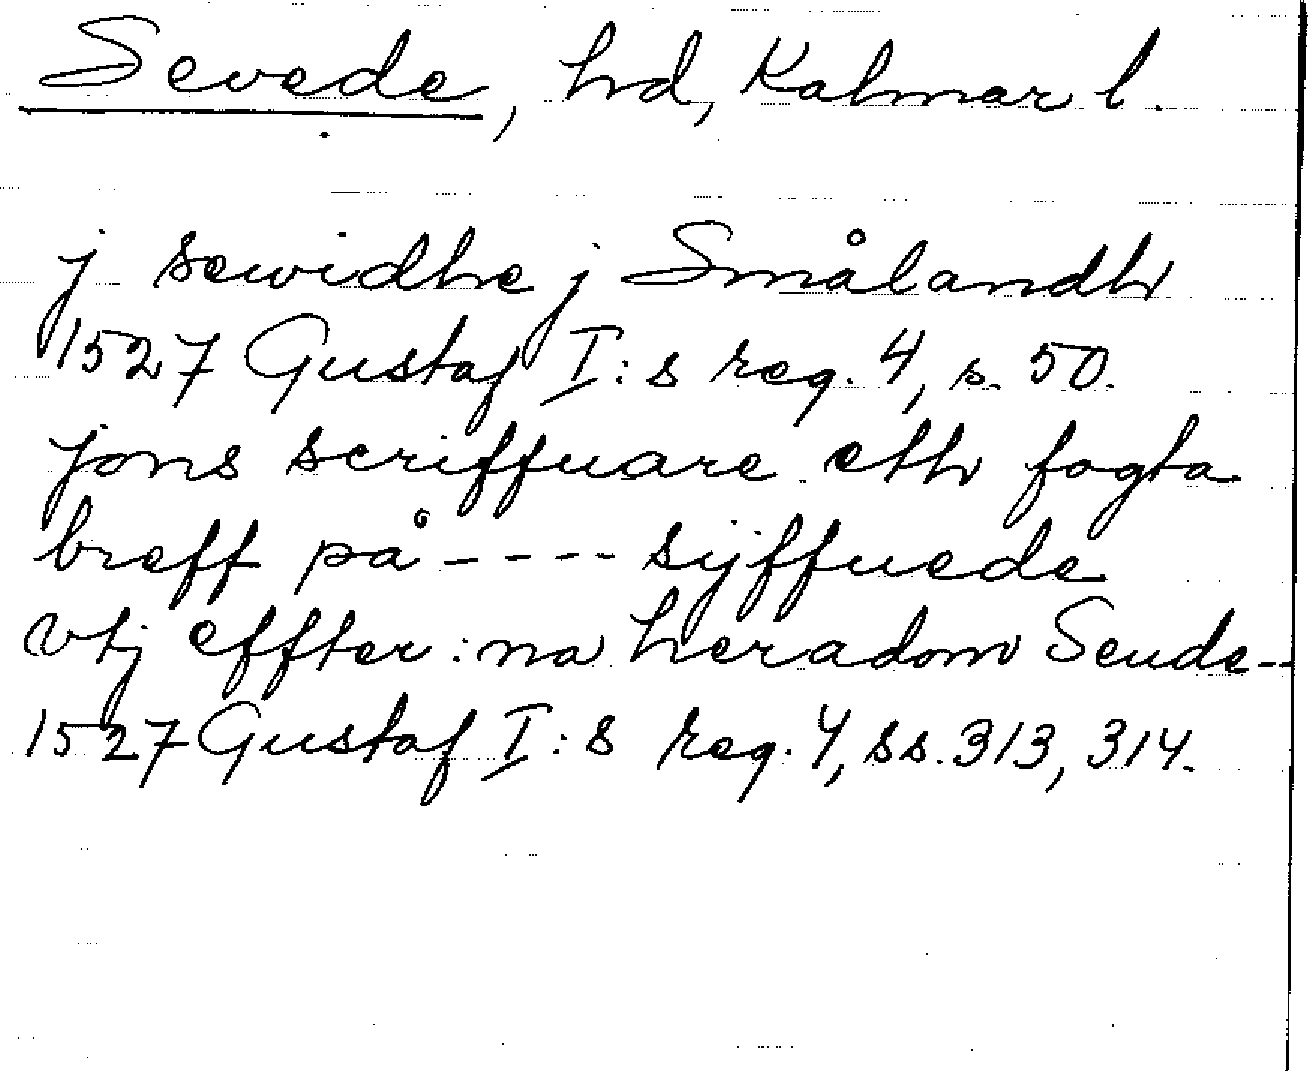 Sevede, hd, Kalmar l.
j sewidhe j Smålandh
1527 Gustaf I:s reg. 4, s. 50.
jons scriffuare eth fogta
breff på ---- sijffuede
vtj effter:na heradom Seude--
1527 Gustaf I:s reg. 4, ss. 313, 314.